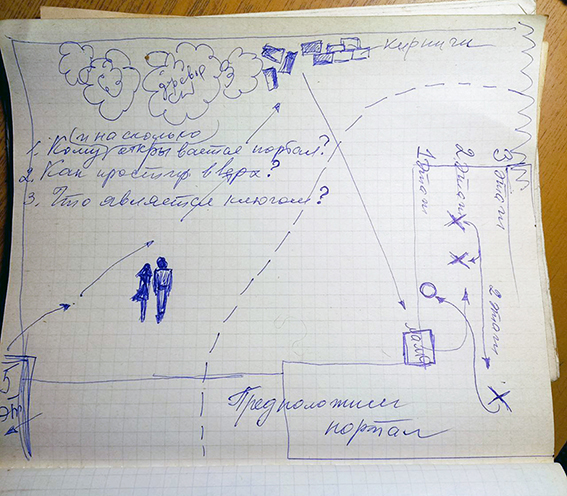 кирпичи
деревья
(и на сколько)
1. Кому открывается портал?
2. Как пройти вверх?
3. Что является ключом?
1 этап
2 этап
3 этап
2 этап
Предположим
портал